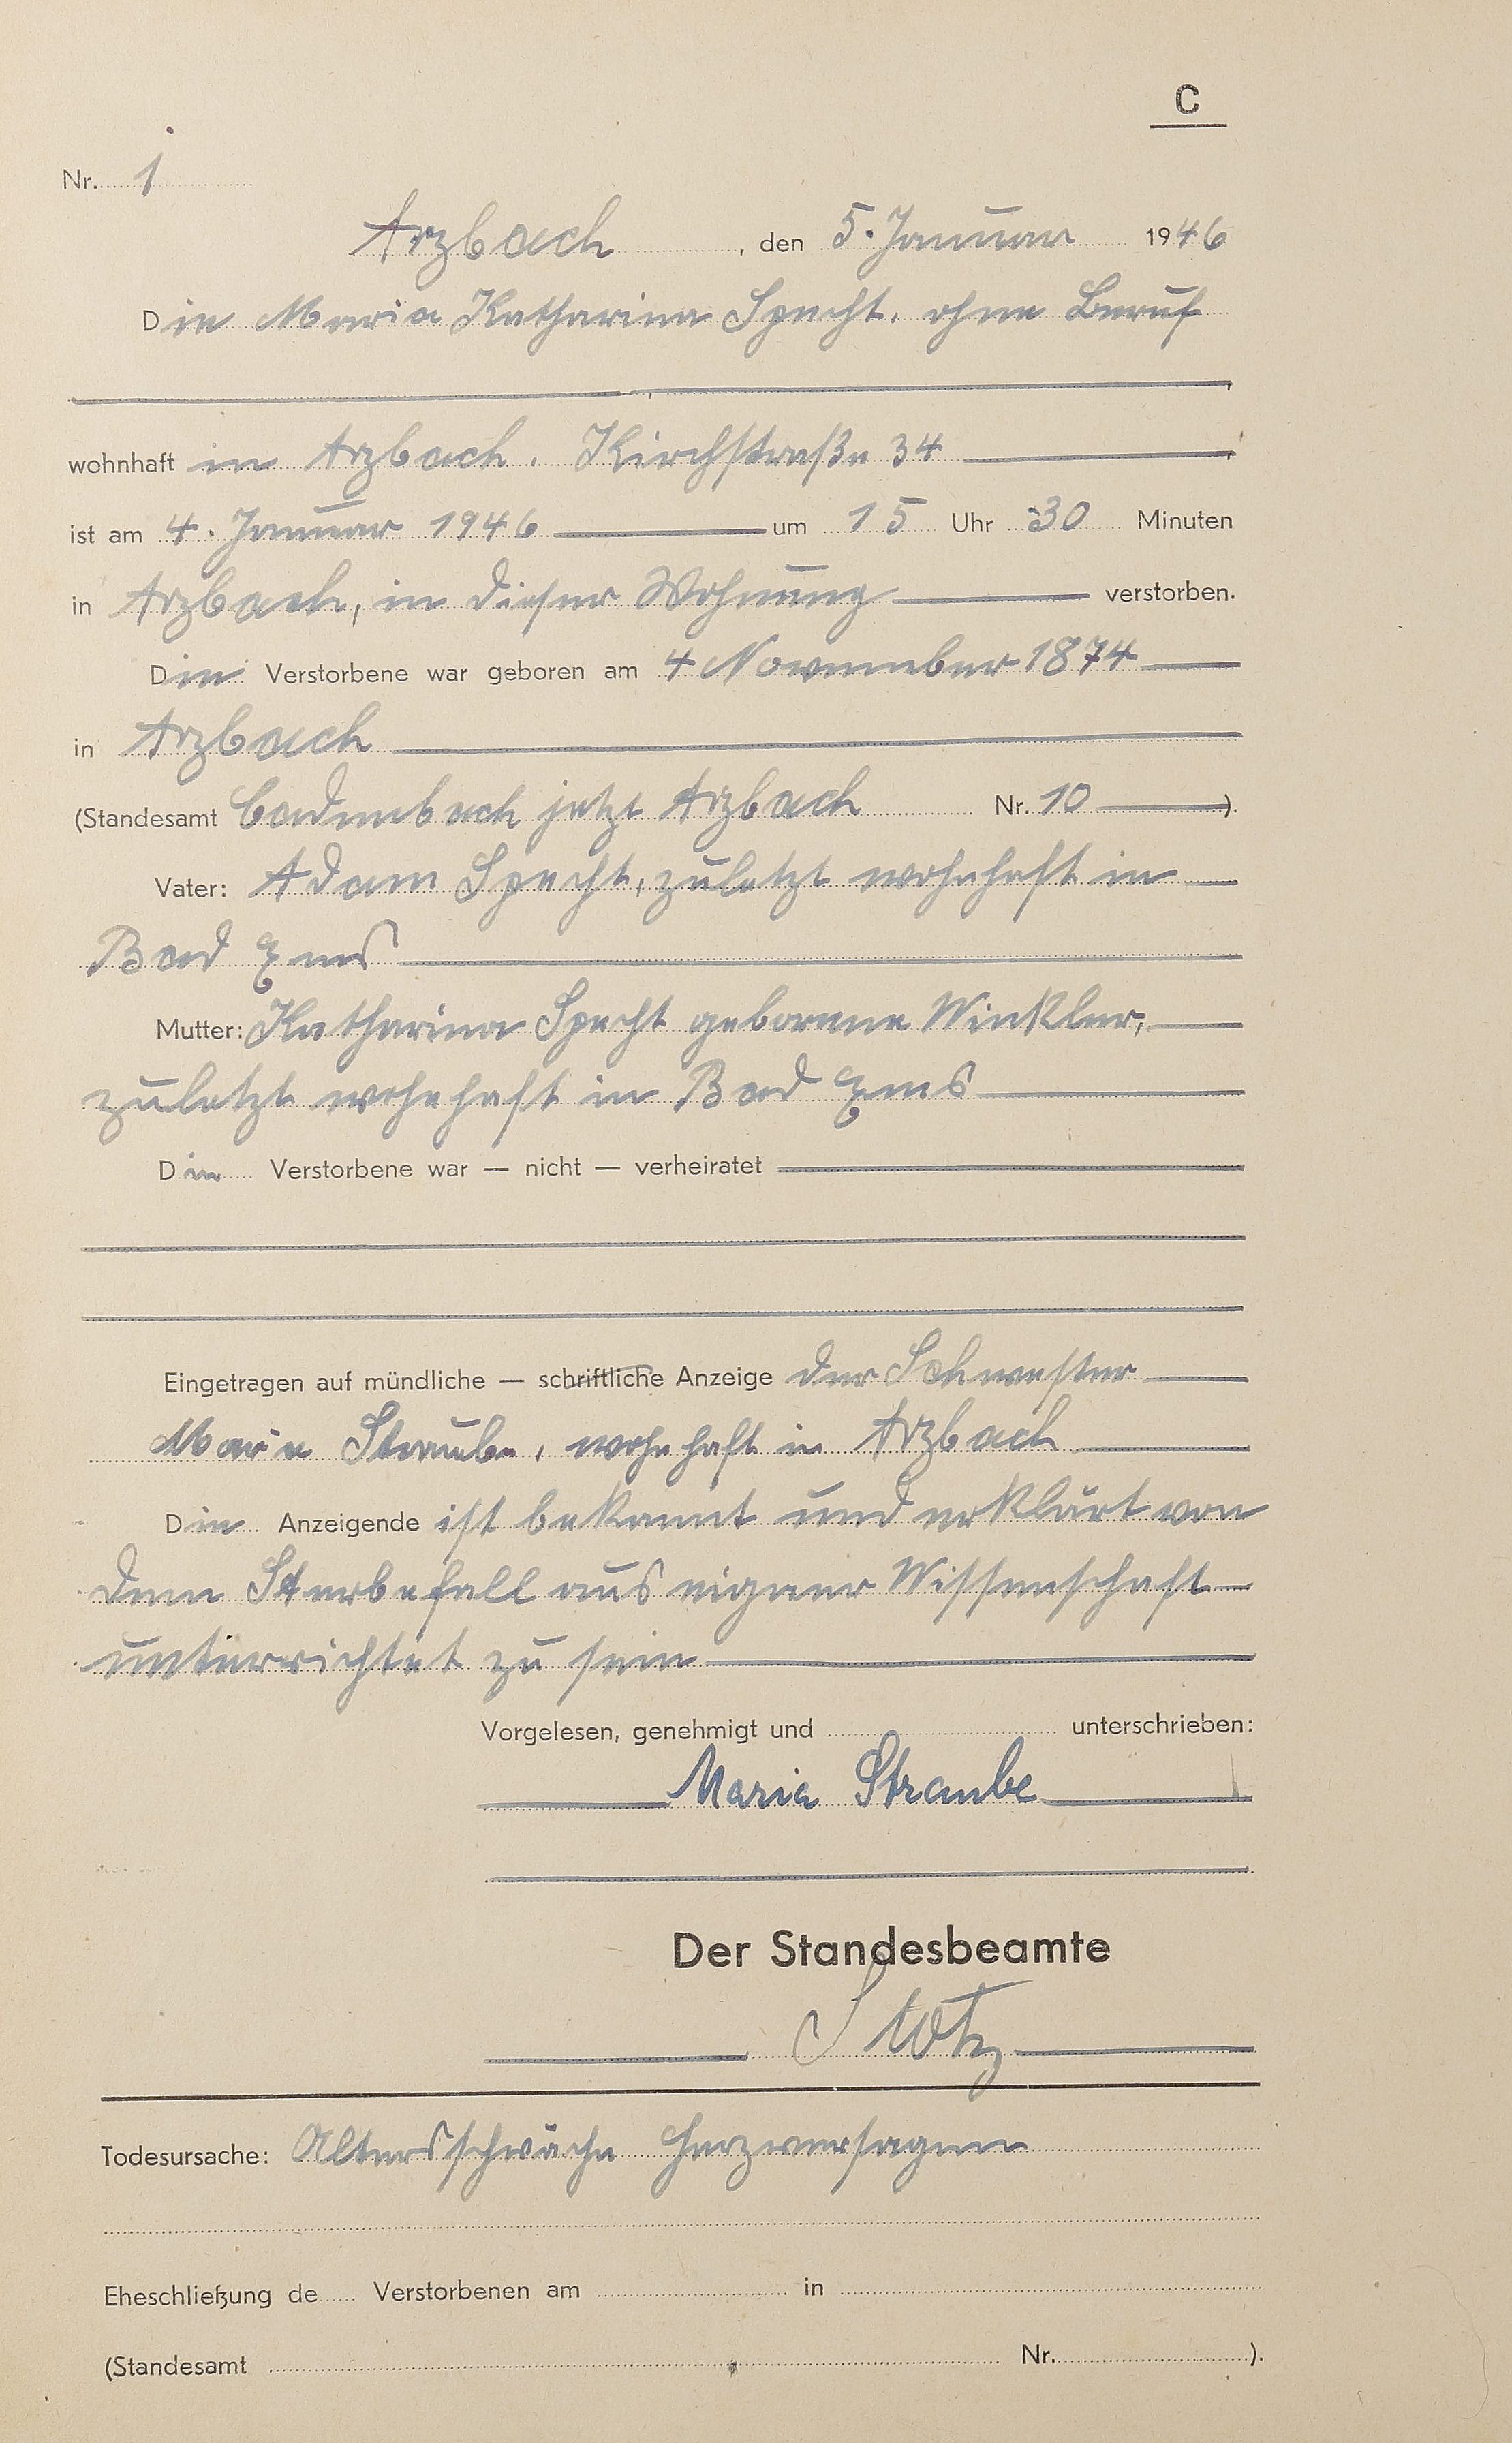 C
Nr. 1
Arzbach, den 5. Januar 1946
Die Maria Katharina Specht, ohne Beruf
wohnhaft in Arzbach, Kirchstraße 34
ist am 4. Januar 1946 um 15 Uhr 30 Minuten
in Arzbach, in dieser Wohnung verstorben.
Die Verstorbene war geboren am 4 November 1874
in Arzbach
(Standesamt Cadenbach jetzt Arzbach Nr. 10).
Vater: Adam Specht, zuletzt wohnhaft in
Bad Ems
Mutter: Katharina Specht geborene Winkler,
zuletzt wohnhaft in Bad Ems
Die Verstorbene war — nicht — verheiratet
Eingetragen auf mündliche — schriftliche Anzeige der Schwester
Maria Straube, wohnhaft in Arzbach
Die Anzeigende ist bekannt und erklärt von
dem Sterbefall aus eigener Wissenschaft
unterrichtet zu sein
Vorgelesen, genehmigt und unterschrieben:
Maria Straube
Der Standesbeamte
Stotz
Todesursache: Altersschwäche Herzversagen
Eheschließung de Verstorbenen am in
(Standesamt Nr. ).